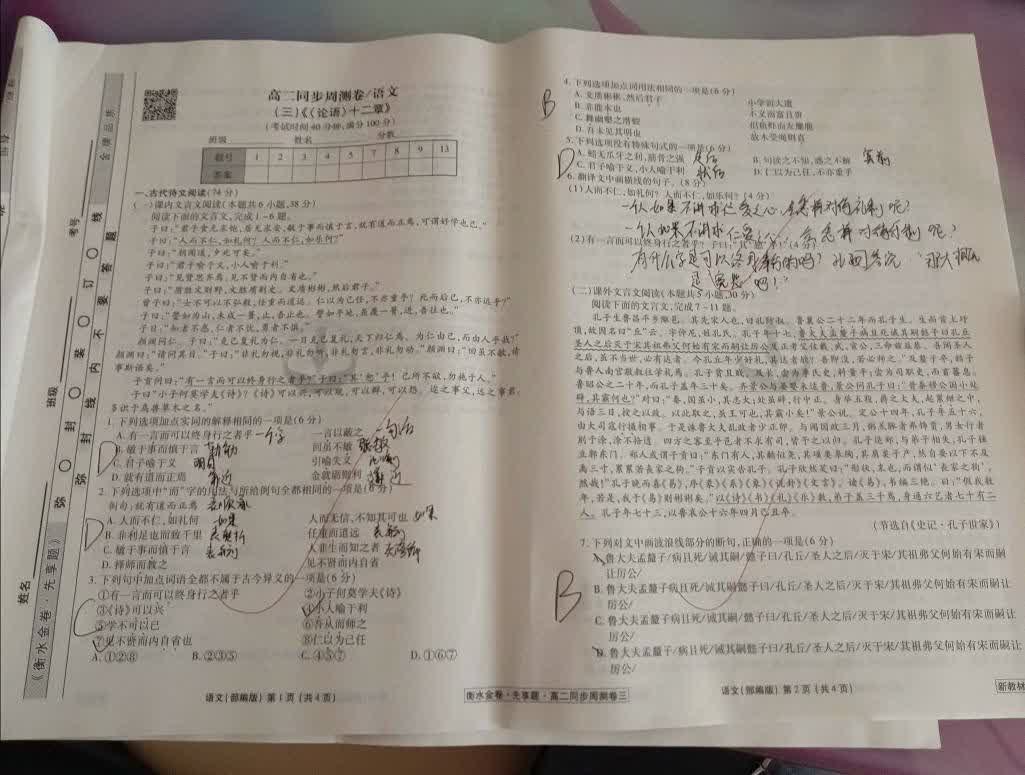 高二同步周测卷/语文
(三)《〈论语〉十二章》
(考试时间40分钟,满分100分)
班级 姓名 分数
题号 1 2 3 4 5 6 7 8 9 10 11 12 13
答案
一、古代诗文阅读(74分)
(一)课内文言文阅读(本题共6小题,38分)
阅读下面的文言文,完成1~6题。
子曰:“君子食无求饱,居无求安,敏于事而慎于言,就有道而正焉,可谓好学也已。”
子曰:“人而不仁,如礼何?人而不仁,如乐何?”
子曰:“朝闻道,夕死可矣。”
子曰:“君子喻于义,小人喻于利。”
子曰:“见贤思齐焉,见不贤而内自省也。”
子曰:“质胜文则野,文胜质则史。文质彬彬,然后君子。”
曾子曰:“士不可以不弘毅,任重而道远。仁以为己任,不亦重乎?死而后已,不亦远乎?”
子曰:“譬如为山,未成一篑,止,吾止也。譬如平地,虽覆一篑,进,吾往也。”
子曰:“知者不惑,仁者不忧,勇者不惧。”
颜渊问仁。子曰:“克己复礼为仁。一日克己复礼,天下归仁焉。为仁由己,而由人乎哉?”
颜渊曰:“请问其目。”子曰:“非礼勿视,非礼勿听,非礼勿言,非礼勿动。”颜渊曰:“回虽不敏,请
事斯语矣。”
子贡问曰:“有一言而可以终身行之者乎?”子曰:“其‘恕’乎!己所不欲,勿施于人。”
子曰:“小子何莫学夫《诗》?《诗》可以兴,可以观,可以群,可以怨。迩之事父,远之事君,
多识于鸟兽草木之名。”
1. 下列选项加点实词的解释相同的一项是(6分)
A. 有一言而可以终身行之者乎 一个字 一言以蔽之 一句话
B. 敏于事而慎于言 勤勉 回虽不敏
C. 君子喻于义 引喻失义
D. 就有道而正焉 靠近 金就砺则利 靠近
D
2. 下列选项中“而”字的用法与所给例句全都相同的一项是(6分)
例句:就有道而正焉
A. 人而不仁,如礼何 如果 人而无信,不知其可也 如果
B. 非利足也而致千里 表转折 任重而道远
C. 敏于事而慎于言 人非生而知之者
D. 择师而教之 见不贤而内自省
D
3. 下列句中加点词语全都不属于古今异义的一项是(6分)
①有一言而可以终身行之者乎 ②小子何莫学夫《诗》
③《诗》可以兴 ④小人喻于利
⑤学不可以已 ⑥吾从而师之
⑦见不贤而内自省也 ⑧仁以为己任
A. ①②⑧ B. ②③⑤ C. ④⑤⑦ D. ①⑥⑦
C
语文(部编版) 第1页(共4页)
姓名 班级 考号
《衡水金卷·先享题》
弥 封 装 订 线 内 不 要 答 题
金榜品质
4. 下列选项加点词用法相同的一项是(6分)
A. 文质彬彬,然后君子 小学而大遗
B. 非能水也 不义而富且贵
C. 舞幽壑之潜蛟 侣鱼虾而友麋鹿
D. 吾未见其明也 故木受绳则直
B
5. 下列选项没有特殊句式的一项是(6分)
A. 蚓无爪牙之利,筋骨之强 定后 B. 句读之不知,惑之不解 宾前
C. 君子喻于义,小人喻于利 状后 D. 仁以为己任,不亦重乎
D
6. 翻译文中画横线的句子。(8分)
(1)人而不仁,如礼何?人而不仁,如乐何?(4分)
一个人如果不讲求仁爱之心,会怎样对待礼制呢?
一个人如果不讲求仁爱之心,会怎样对待 呢?
(2)有一言而可以终身行之者乎?子曰:“其‘恕’乎!”(4分)
有什么字是可以终身奉行的吗?
是宽恕吧!”
(二)课外文言文阅读(本题共5小题,30分)
阅读下面的文言文,完成7~11题。
孔子生鲁昌平乡陬邑。其先宋人也,曰孔防叔。鲁襄公二十二年而孔子生。生而首上圩
顶,故因名曰“丘”云。字仲尼,姓孔氏。孔子年十七,鲁大夫孟釐子病且死诫其嗣懿子曰孔丘
圣人之后灭于宋其祖弗父何始有宋而嗣让厉公及正考父佐戴、武、宣公,三命兹益恭。吾闻圣人
之后,虽不当世,必有达者。今孔丘年少好礼,其达者欤?吾即没,若必师之。”及釐子卒,懿子
与鲁人南宫敬叔往学礼焉。孔子贫且贱。及长,尝为季氏史,料量平;尝为司职吏,而畜蕃息。
鲁昭公之二十年,而孔子盖年三十矣。齐景公与晏婴来适鲁,景公问孔子曰:“昔秦穆公国小处
辟,其霸何也?”对曰:“秦,国虽小,其志大;处虽辟,行中正。身举五羖,爵之大夫,起累绁之中,
与语三日,授之以政。以此取之,虽王可也,其霸小矣!”景公说。定公十四年,孔子年五十六,
由大司寇行摄相事。于是诛鲁大夫乱政者少正卯。与闻国政三月,粥羔豚者弗饰贾,男女行者
别于涂,涂不拾遗。四方之客至乎邑者不求有司,皆予之以归。孔子适郑,与弟子相失,孔子独
立郭东门。郑人或谓子贡曰:“东门有人,其颡似尧,其项类皋陶,其肩类子产,然自要以下不及
禹三寸,累累若丧家之狗。”子贡以实告孔子。孔子欣然笑曰:“形状,末也,而谓似‘丧家之狗’,
然哉!”孔子晚而喜《易》,序《彖》《系》《象》《说卦》《文言》。读《易》,韦编三绝。曰:“假我数
年,若是,我于《易》则彬彬矣。”以《诗》《书》《礼》《乐》教,弟子盖三千焉,身通六艺者七十有二
人。孔子年七十三,以鲁哀公十六年四月己丑卒。
(节选自《史记·孔子世家》)
7. 下列对文中画波浪线部分的断句,正确的一项是(6分)
A. 鲁大夫孟釐子/病且死/诫其嗣/懿子曰/孔丘/圣人之后/灭于宋/其祖弗父何始有宋而嗣
让厉公/
B. 鲁大夫孟釐子病且死/诫其嗣懿子曰/孔丘/圣人之后/灭于宋/其祖弗父何始有宋而嗣让
厉公/
C. 鲁大夫孟釐子病且死/诫其嗣/懿子曰/孔丘/圣人之后/灭于宋/其祖弗父何始有宋而嗣让
厉公/
D. 鲁大夫孟釐子/病且死/诫其嗣懿子曰/孔丘/圣人之后/灭于宋/其祖弗父何始有宋而嗣让
厉公/
B
衡水金卷·先享题·高二同步周测卷三
语文(部编版) 第2页(共4页)
新教材